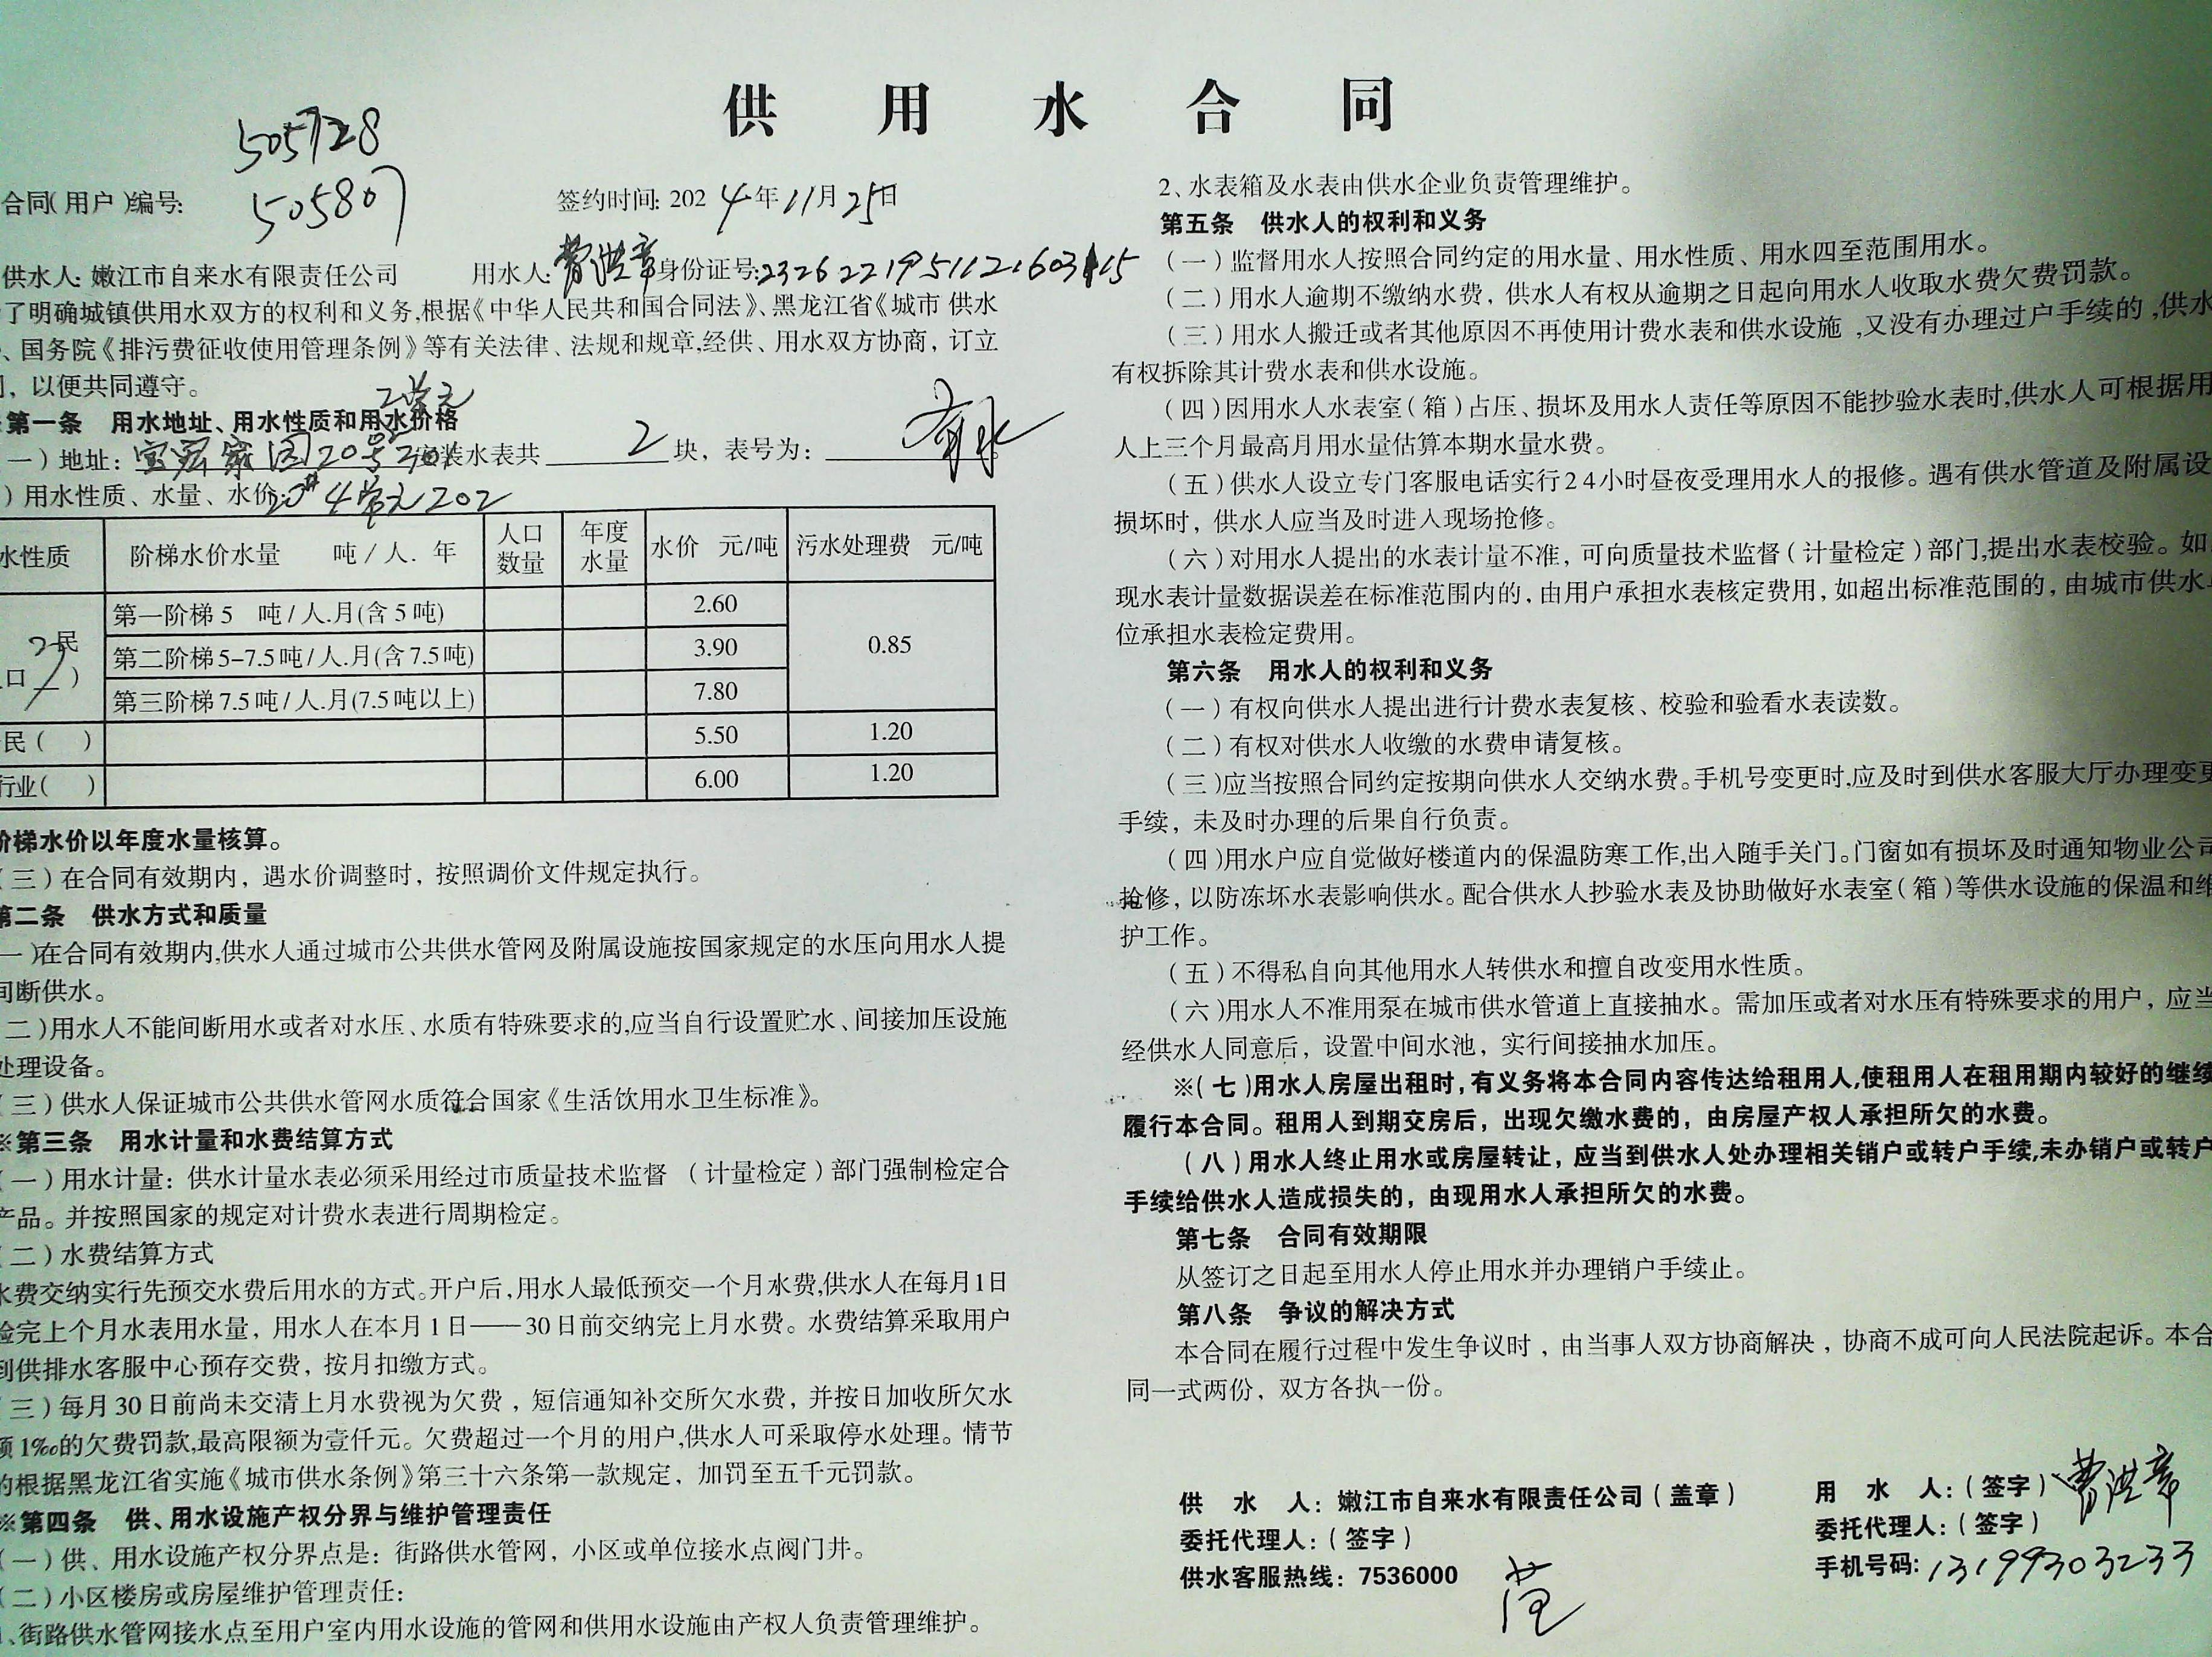 供 用 水 合 同
505728
合同(用户)编号: 505807
签约时间: 2024年11月25日
供水人: 嫩江市自来水有限责任公司 用水人: 曹洪章 身份证号:
了明确城镇供用水双方的权利和义务,根据《中华人民共和国合同法》、黑龙江省《城市 供水
、国务院《排污费征收使用管理条例》等有关法律、法规和规章,经供、用水双方协商，订立
，以便共同遵守。
2单元
第一条 用水地址、用水性质和用水价格
一）地址: 家园20号201 装水表共 2 块，表号为:
）用水性质、水量、水价: 20# 4单元202
水性质 阶梯水价水量 吨/人. 年 人口数量 年度水量 水价 元/吨 污水处理费 元/吨
民 口 2 ） 第一阶梯 5 吨/人.月(含 5 吨) 2.60 0.85
第二阶梯 5-7.5吨/人.月(含 7.5吨) 3.90
第三阶梯 7.5吨/人.月(7.5吨以上) 7.80
民（ ） 5.50 1.20
行业（ ） 6.00 1.20
阶梯水价以年度水量核算。
（三）在合同有效期内，遇水价调整时，按照调价文件规定执行。
第二条 供水方式和质量
一)在合同有效期内,供水人通过城市公共供水管网及附属设施按国家规定的水压向用水人提
间断供水。
二)用水人不能间断用水或者对水压、水质有特殊要求的,应当自行设置贮水、间接加压设施
处理设备。
（三）供水人保证城市公共供水管网水质符合国家《生活饮用水卫生标准》。
※第三条 用水计量和水费结算方式
（一）用水计量：供水计量水表必须采用经过市质量技术监督 （计量检定）部门强制检定合
产品。并按照国家的规定对计费水表进行周期检定。
（二）水费结算方式
水费交纳实行先预交水费后用水的方式。开户后,用水人最低预交一个月水费,供水人在每月1日
验完上个月水表用水量，用水人在本月 1 日——30 日前交纳完上月水费。水费结算采取用户
到供排水客服中心预存交费，按月扣缴方式。
（三）每月 30 日前尚未交清上月水费视为欠费，短信通知补交所欠水费，并按日加收所欠水
额1‰的欠费罚款,最高限额为壹仟元。欠费超过一个月的用户,供水人可采取停水处理。情节
的根据黑龙江省实施《城市供水条例》第三十六条第一款规定，加罚至五千元罚款。
※第四条 供、用水设施产权分界与维护管理责任
（一）供、用水设施产权分界点是：街路供水管网，小区或单位接水点阀门井。
（二）小区楼房或房屋维护管理责任：
、街路供水管网接水点至用户室内用水设施的管网和供用水设施由产权人负责管理维护。
2、水表箱及水表由供水企业负责管理维护。
第五条 供水人的权利和义务
（一）监督用水人按照合同约定的用水量、用水性质、用水四至范围用水。
（二）用水人逾期不缴纳水费，供水人有权从逾期之日起向用水人收取水费欠费罚款。
（三）用水人搬迁或者其他原因不再使用计费水表和供水设施 ,又没有办理过户手续的 ,供水
有权拆除其计费水表和供水设施。
（四）因用水人水表室（箱）占压、损坏及用水人责任等原因不能抄验水表时,供水人可根据用
人上三个月最高月用水量估算本期水量水费。
（五）供水人设立专门客服电话实行24小时昼夜受理用水人的报修。遇有供水管道及附属设
损坏时，供水人应当及时进入现场抢修。
（六）对用水人提出的水表计量不准，可向质量技术监督（计量检定）部门,提出水表校验。如
现水表计量数据误差在标准范围内的，由用户承担水表核定费用，如超出标准范围的，由城市供水
位承担水表检定费用。
第六条 用水人的权利和义务
（一）有权向供水人提出进行计费水表复核、校验和验看水表读数。
（二）有权对供水人收缴的水费申请复核。
（三)应当按照合同约定按期向供水人交纳水费。手机号变更时,应及时到供水客服大厅办理变更
手续，未及时办理的后果自行负责。
（四)用水户应自觉做好楼道内的保温防寒工作,出入随手关门。门窗如有损坏及时通知物业公司
抢修，以防冻坏水表影响供水。配合供水人抄验水表及协助做好水表室（箱）等供水设施的保温和维
护工作。
（五）不得私自向其他用水人转供水和擅自改变用水性质。
（六)用水人不准用泵在城市供水管道上直接抽水。需加压或者对水压有特殊要求的用户，应当
经供水人同意后，设置中间水池，实行间接抽水加压。
※(七)用水人房屋出租时,有义务将本合同内容传达给租用人,使租用人在租用期内较好的继续
履行本合同。租用人到期交房后，出现欠缴水费的，由房屋产权人承担所欠的水费。
（八）用水人终止用水或房屋转让，应当到供水人处办理相关销户或转户手续,未办销户或转户
手续给供水人造成损失的，由现用水人承担所欠的水费。
第七条 合同有效期限
从签订之日起至用水人停止用水并办理销户手续止。
第八条 争议的解决方式
本合同在履行过程中发生争议时，由当事人双方协商解决，协商不成可向人民法院起诉。本合
同一式两份，双方各执一份。
供 水 人：嫩江市自来水有限责任公司（盖章）
委托代理人：（签字）
供水客服热线：7536000
用 水 人：（签字）曹洪章
委托代理人：（签字）
手机号码: 13199303233